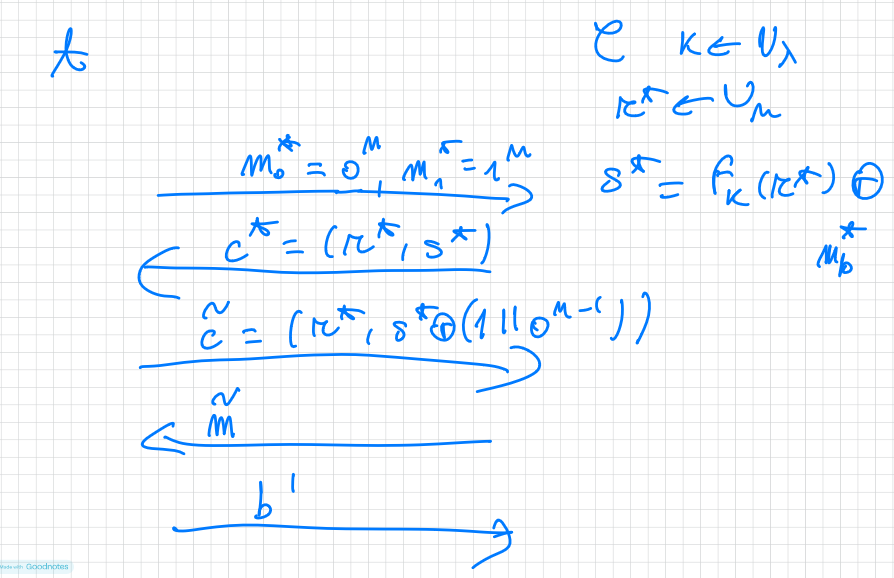 A C K ← U_λ
r* ← U_n
m₀* = 0ⁿ, m₁* = 1ⁿ
s* = F_K(r*) ⊕ m_b*
c* = (r*, s*)
c̃ = (r*, s* ⊕ (1 || 0ⁿ⁻¹))
m̃
b'
Made with Goodnotes